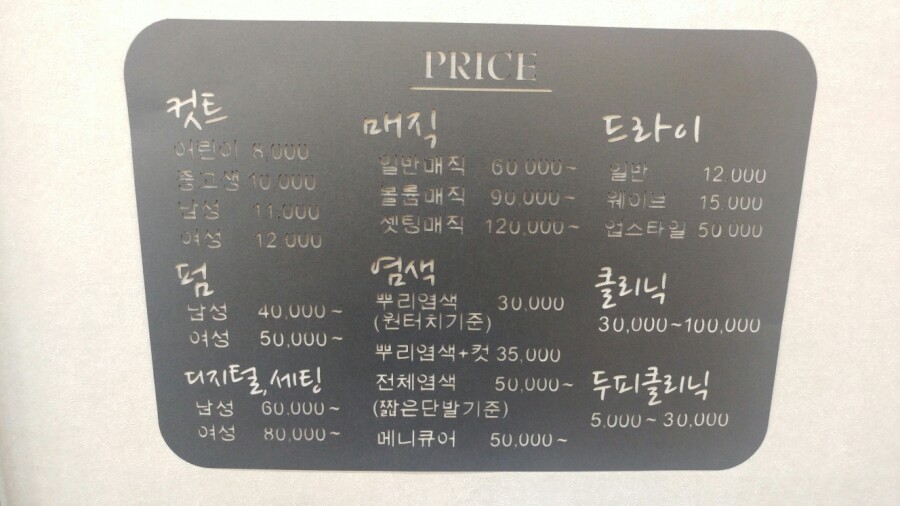 PRICE
컷트
어린이 8,000
중고생 10,000
남성 11,000
여성 12,000
펌
남성 40,000~
여성 50,000~
디지털,세팅
남성 60,000~
여성 80,000~
매직
일반매직 60,000~
볼륨매직 90,000~
셋팅매직 120,000~
염색
뿌리염색 30,000
(원터치기준)
뿌리염색+컷 35,000
전체염색 50,000~
(짧은단발기준)
메니큐어 50,000~
드라이
일반 12,000
웨이브 15,000
업스타일 50,000
클리닉
30,000~100,000
두피클리닉
5,000~30,000